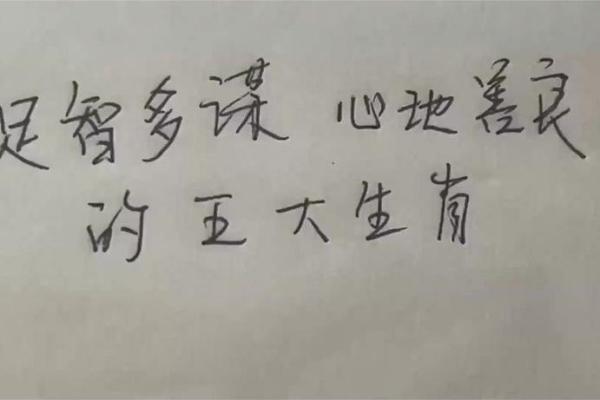 足智多谋 心地善良
的五大生肖